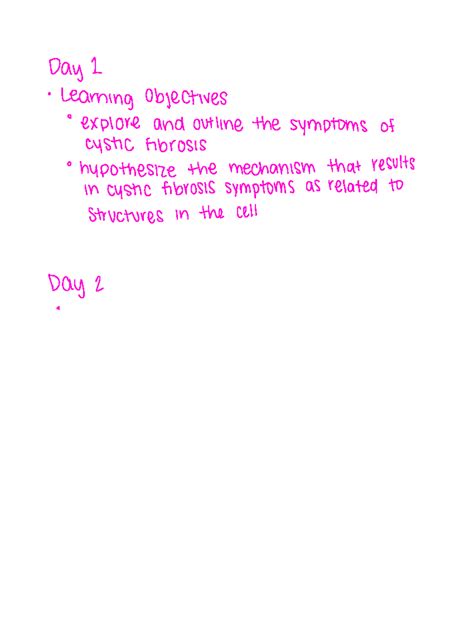 Day 1
• Learning Objectives
° explore and outline the symptoms of
cystic fibrosis
° hypothesize the mechanism that results
in cystic fibrosis symptoms as related to
structures in the cell
Day 2
•